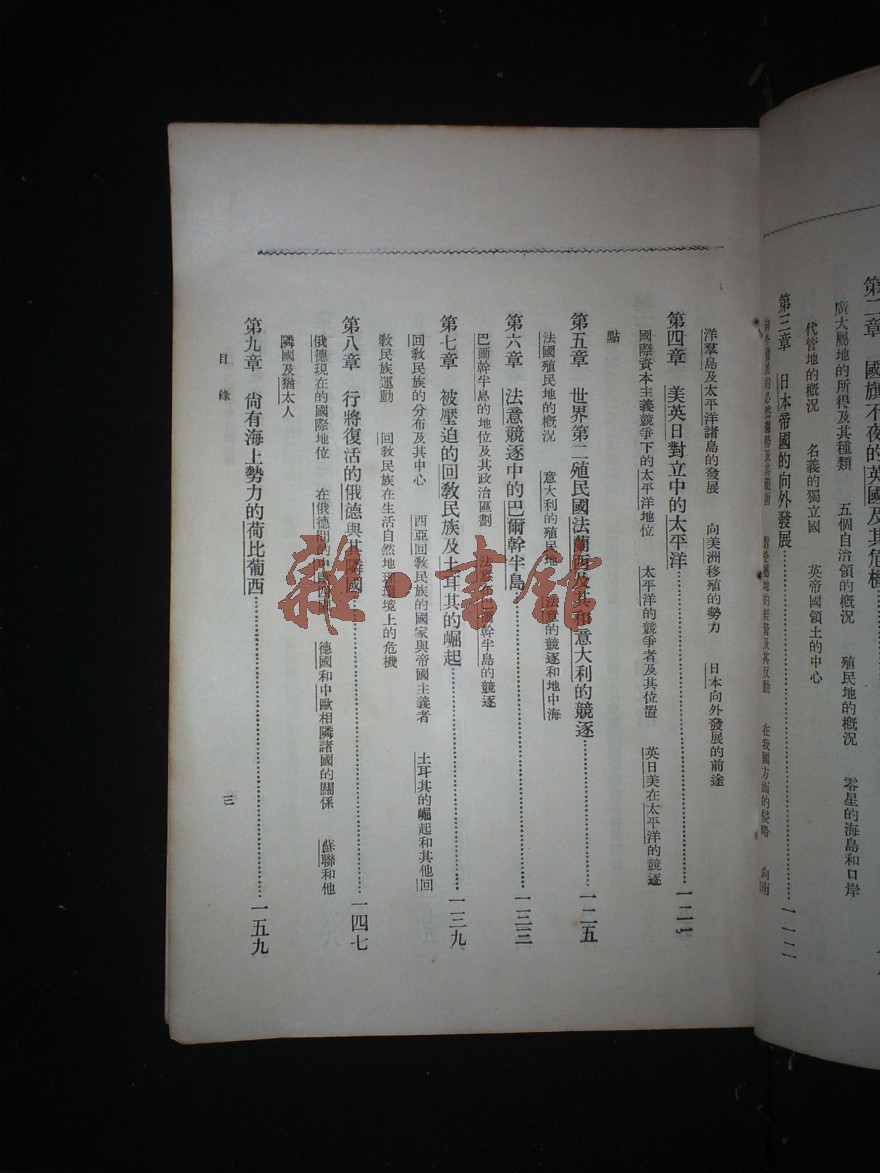 第二章 國旗不夜的英國及其危機
廣大屬地的所得及其種類 五個自治領的概況 殖民地的概況 零星的海島和口岸
代管地的概況 名義的獨立國 英帝國領土的中心
第三章 日本帝國的向外發展……一一二
向外發展的必然趨勢及其範圍 對於屬地的經營及其反動 在我國方面的侵略 向南
洋羣島及太平洋諸島的發展 向美洲移殖的勢力 日本向外發展的前途
第四章 美英日對立中的太平洋……一二一
國際資本主義競爭下的太平洋地位 太平洋的競爭者及其位置 英日美在太平洋的競逐
點
第五章 世界第二殖民國法蘭西及其和意大利的競逐……一二五
法國殖民地的概況 意大利的殖民地 法意的競逐和地中海
第六章 法意競逐中的巴爾幹半島……一三三
巴爾幹半島的地位及其政治區劃 法意在巴爾幹半島的競逐
第七章 被壓迫的回敎民族及土耳其的崛起……一三九
回敎民族的分布及其中心 西亞回敎民族的國家與帝國主義者 土耳其的崛起和其他回
敎民族運動 回敎民族在生活自然地理環境上的危機
第八章 行將復活的俄德與其隣國……一四七
俄德現在的國際地位 在俄德間的中 德國和中歐相隣諸國的關係 蘇聯和他
隣國及猶太人
第九章 尙有海上勢力的荷比葡西……一五九
目錄
三
雜·書館